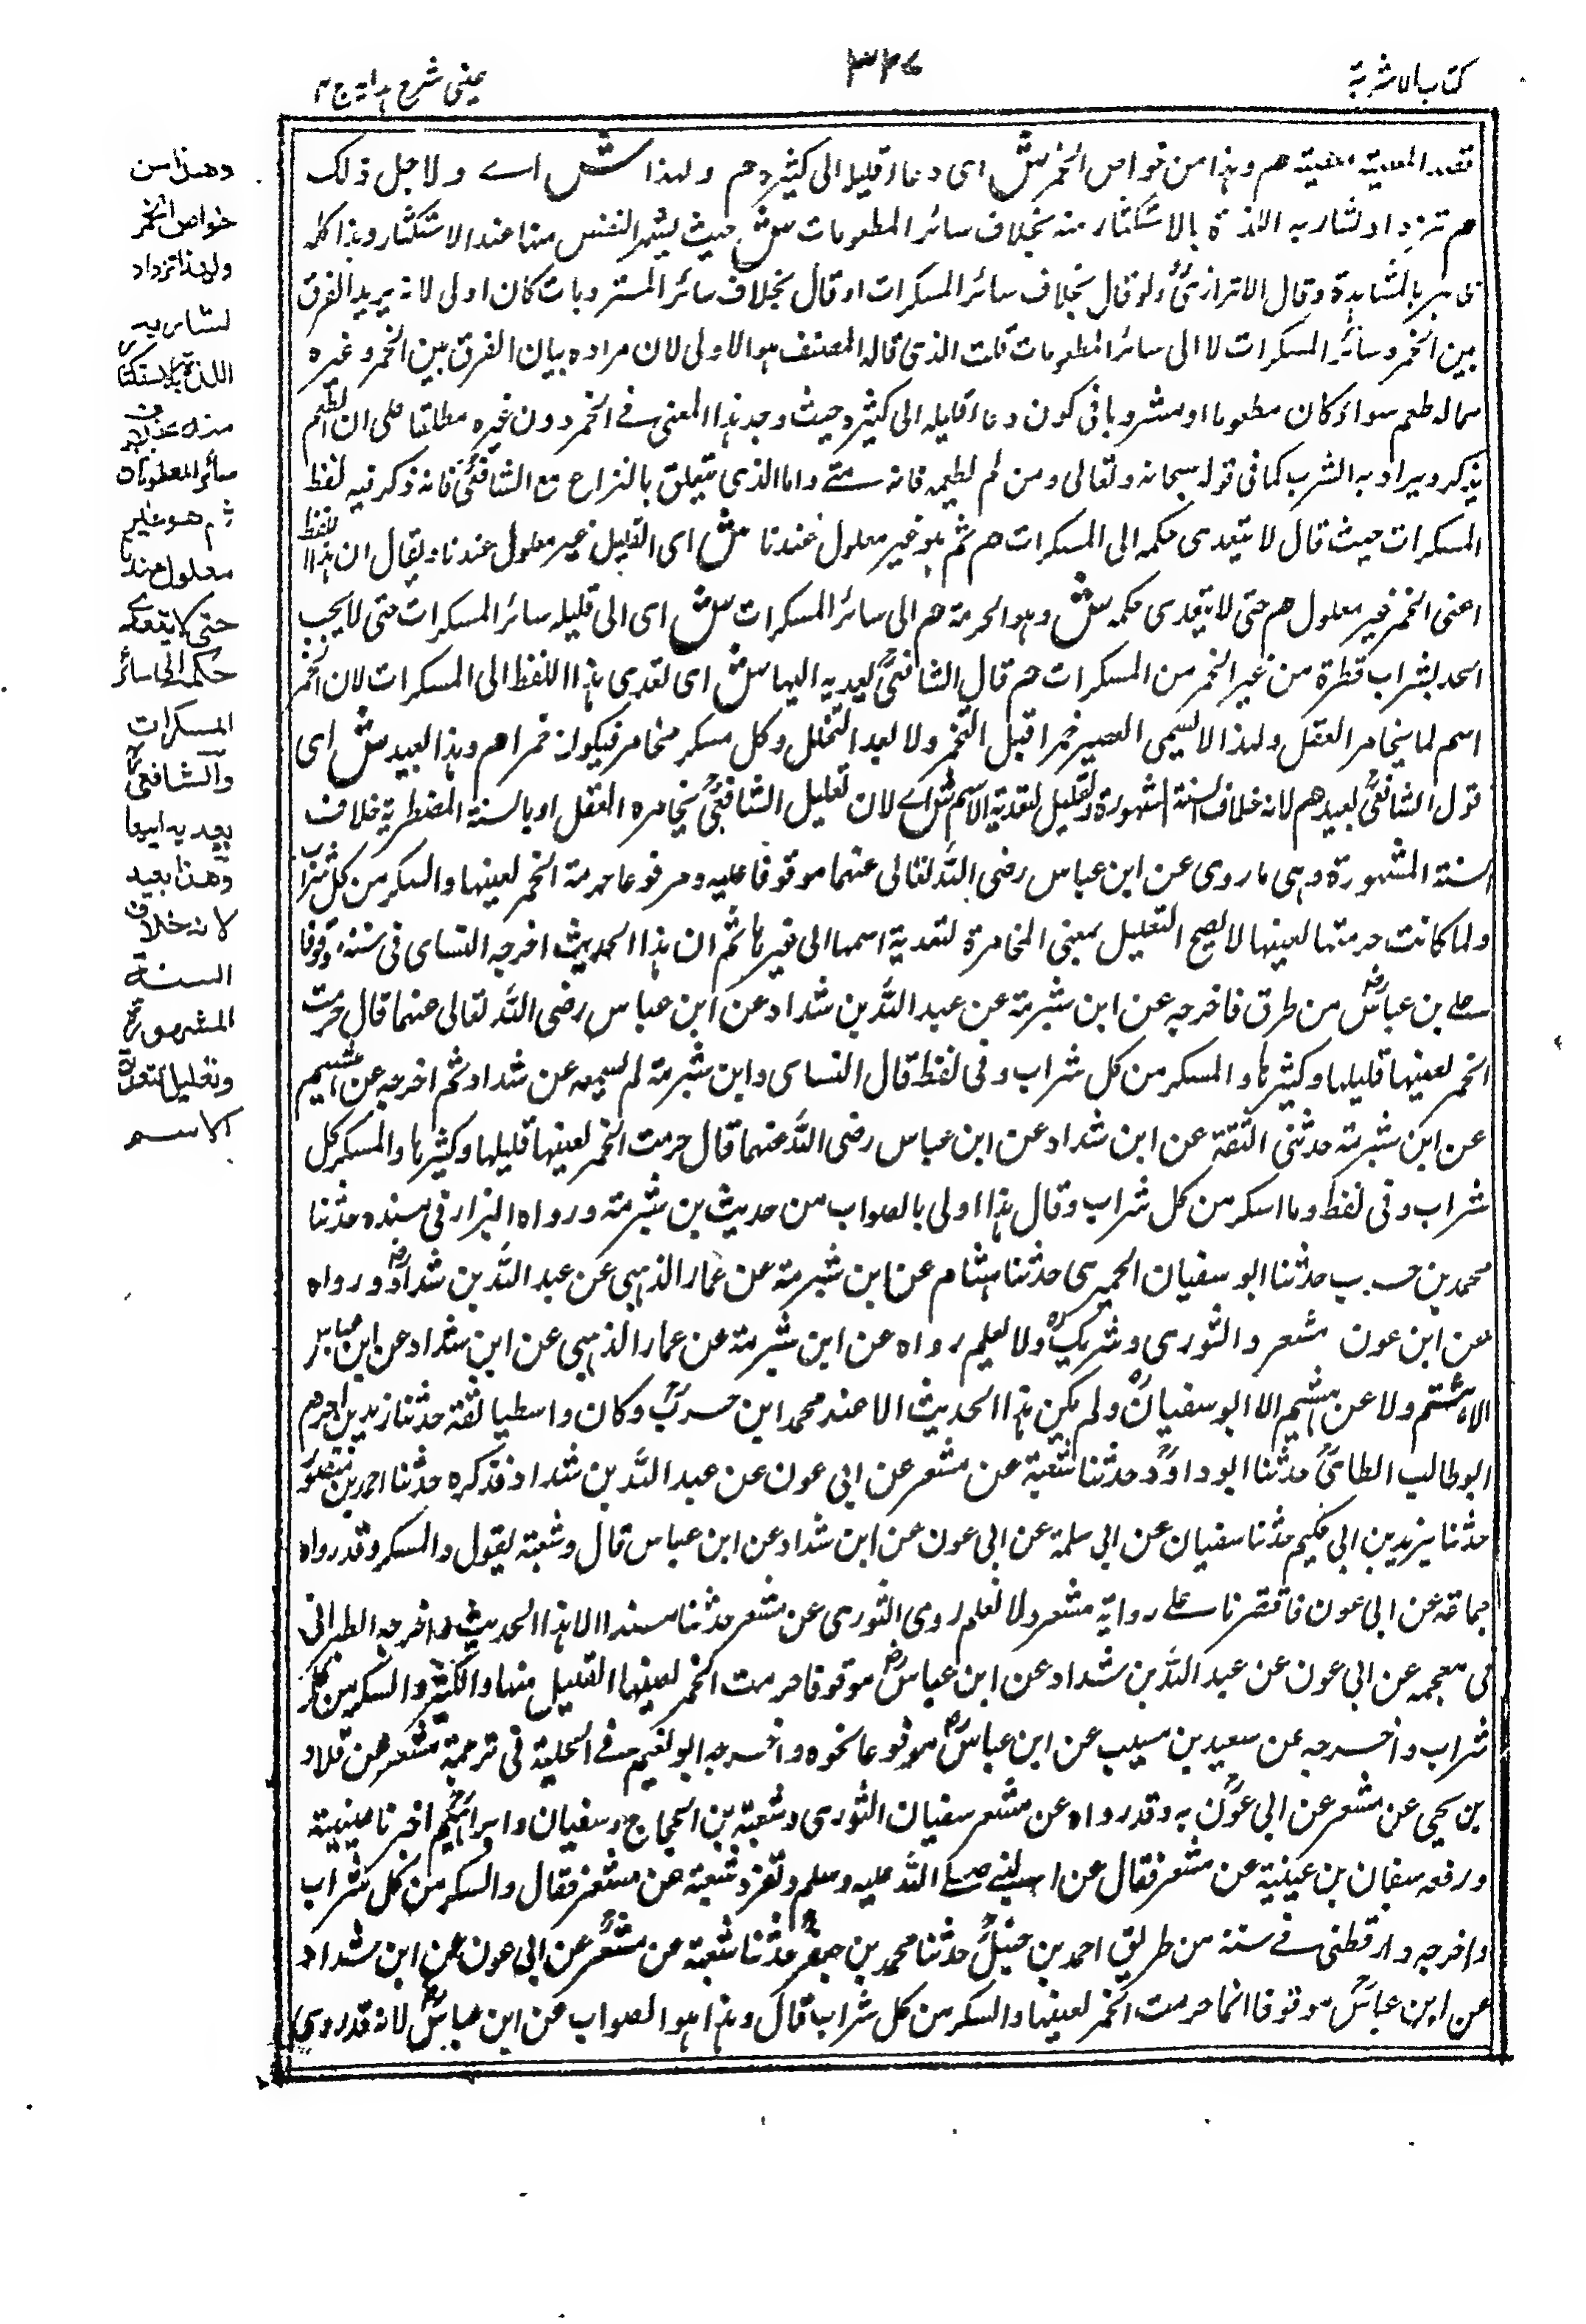 كتاب الاشربة
٣٣٤
عینی شرح هدایه ج ٣
هم وهذا من خواص الخمر ش ای دعاء قليله الى كثيره م ولهذا ش اے ولاجل ذلک
هم تزداد لشاربه اللذة بالاستكثار منه بخلاف سائر المطعومات ش حيث عند الاستكثار وهذا كله
بالمشاهدة وقال الاترازی ولو قال بخلاف سائر المسكرات او قال بخلاف سائر المشروبات كان اولى لانه يريد الفرق
بين الخمر وسائر المسكرات لا الى سائر المطعومات قلت الذی قاله المصنف هو الاولى لان مراده بيان الفرق بين الخمر وغيره
مماله طعم سواء كان مطعوما او مشروبا فی كون دعاء قليله الى كثيره وحيث وجد هذا المعنى فے الخمر دون غيره مطلقا على ان الطعم
يذكر ويراد به الشرب كما فی قوله سبحانه وتعالى ومن لم يطعمه فانه منے واما الذی يتعلق بالنزاع مع الشافعیؒ فانه ذكر فيه لفظ
المسكرات حيث قال لا يتعدى حكمه الى المسكرات هم ثم هو غير معلول عندنا ش ای القليل غير معلول عندنا ويقال ان هذا اللفظ
اعنی الخمر غير معلول هم حتى لا يتعدى حكمه ش وهو الحرمة هم الى سائر المسكرات ش ای الى قليله سائر المسكرات حتى لا يجب
الحد بشراب قطرة من غير الخمر من المسكرات هم قال الشافعیؒ يعديه اليها ش ای يعدی هذا اللفظ الى المسكرات لان الخمر
اسم لما يخامر العقل ولهذا لا يسمى العصير خمرا قبل التخمر ولا بعد التخلل وكل مسكر مخامر فيكون خمرا هم وهذا بعيد ش ای
قول الشافعیؒ بعيد هم لانه خلاف السنة المشهورة وتعليل لتعدية الاسم ش اے لان تعليل الشافعیؒ بمخامرة العقل خلاف
السنة المشهورة وهی ما روی عن ابن عباس رضی الله تعالى عنهما موقوفا عليه ومرفوعا حرمة الخمر لعينها والسكر من كل شراب
ولما كانت حرمتها لعينها لا يصح التعليل بمعنى المخامرة لتعدية اسمها الى غيرها ثم ان هذا الحديث اخرجه النسای فی سننه موقوفا
علے بن عباسؓ من طرق فاخرجه عن ابن شبرمة عن عبد الله بن شداد عن ابن عباس رضی الله تعالى عنهما قال حرمت
الخمر لعينها قليلها وكثيرها والمسكر من كل شراب وفی لفظ قال النسای وابن شبرمة لم يسمعه عن شداد ثم اخرجه عن هشيم
عن ابن شبرمة حدثنی الثقة عن ابن شداد عن ابن عباس رضی الله عنهما قال حرمت الخمر لعينها قليلها وكثيرها والمسكر كل
شراب وفی لفظ وما اسكر من كل شراب وقال هذا اولى بالصواب من حديث بن شبرمة ورواه البزار فی مسنده حدثنا
محمد بن حرب حدثنا ابو سفيان الحميری حدثنا هشام عن ابن شبرمة عن عمار الذهبی عن عبد الله بن شداد ورواه
عن ابن عون مشعر والثوری وشريک ولا نعلم رواه عن ابن شبرمة عن عمار الذهبی عن ابن شداد عن ابن عباس
الا هشيم ولا عن هشيم الا ابو سفيان ولم يكن هذا الحديث الا عند محمد ابن حرب وكان واسطيا ثقة حدثنا زيد بن اخرم
ابو طالب الطائی حدثنا ابو داود حدثنا شعبة عن مشعر عن ابی عون عن عبد الله بن شداد فذكره حدثنا احمد بن منصور
حدثنا يزيد بن ابی حكيم حدثنا سفيان عن ابی سلمة عن ابی عون عن ابن شداد عن ابن عباس قال وشعبة يقول والسكر وقد رواه
جماعة عن ابی عون فاقتصرنا علے رواية مشعر ولا نعلم روی الثوری عن مشعر حدثنا مسندا الا هذا الحديث واخرجه الطبرانی
فی معجمه عن ابی عون عن عبد الله بن شداد عن ابن عباسؓ موقوفا حرمت الخمر لعينها القليل منها والكثير والسكر من كل
شراب واخرجه عن سعيد بن مسيب عن ابن عباسؓ مرفوعا نحوه واخرجه ابو نعيم فے الحلية فی ترجمة مشعر عن خلاد
بن يحيى عن مشعر عن ابی عون به وقد رواه عن مشعر سفيان الثوری وشعبة بن الحجاج وسفيان وابراهيم اخبرنا عيينة
ورفعه سفيان بن عيينة عن مشعر فقال عن النبی صلے الله عليه وسلم وتفرد شعبة عن مشعر فقال والسكر من كل شراب
واخرجه دارقطنی فے سننه من طريق احمد بن حنبل حدثنا محمد بن جعفر حدثنا شعبة عن مشعر عن ابی عون عن ابن شداد
عن ابن عباس موقوفا انما حرمت الخمر لعينها والسكر من كل شراب قال وهذا هو الصواب عن ابن عباسؓ لانه قد روی
وهذا من
خواص الخمر
ولهذا تزداد
لشاربه
اللذة بالاستكثار
منه بخلاف
سائر المطعومات
ثم هو غير
معلول عندنا
حتى لا يتعدى
حكمه الى سائر
المسكرات
والشافعیؒ
يعديه اليها
وهذا بعيد
لانه خلاف
السنة
المشهورة
وتعليل لتعدية
الاسم